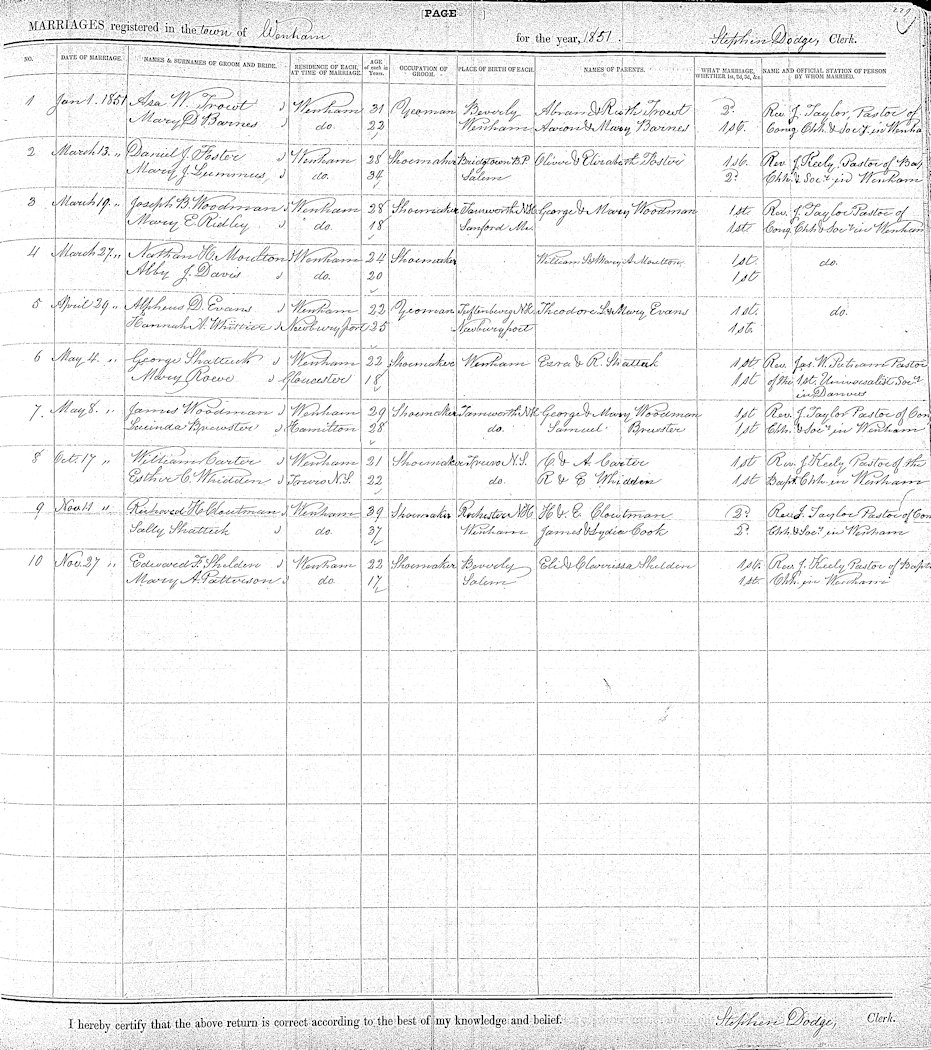 PAGE
229
MARRIAGES registered in the town of Wenham for the year, 1851. Stephen Dodge, Clerk.
NO. DATE OF MARRIAGE. NAMES & SURNAMES OF GROOM AND BRIDE. RESIDENCE OF EACH, AT TIME OF MARRIAGE. AGE of each in Years. OCCUPATION OF GROOM. PLACE OF BIRTH OF EACH. NAMES OF PARENTS. WHAT MARRIAGE, WHETHER 1st, 2d, 3d, &c NAME AND OFFICIAL STATION OF PERSON BY WHOM MARRIED.
1 Jan 1. 1851 Asa W. Trowt Wenham 31 Yeoman Beverly Abram & Ruth Trowt 2d Rev J. Taylor, Pastor of
Mary D. Barnes do. 22 Wenham Aaron & Mary Barnes 1st. Cong. Chh. & Socy. in Wenham
2 March 13. " Daniel J. Foster Wenham 28 Shoemaker Bridgtown B.P. Olive & Elizabeth Foster 1st. Rev. J. Keely, Pastor of Bap
Mary J. Lummus, do. 34 Salem 2d Chh. & Socy. in Wenham
3 March 19. " Joseph B. Woodman Wenham 28 Shoemaker Tamworth N.H. George & Mary Woodman 1st Rev. J. Taylor Pastor of
Mary E. Ridley do. 18 Sanford Me. 1st Cong Chh & Socy in Wenham
4 March 27. " Nathan H. Moulton Wenham 24 Shoemaker William S & Mary A Moulton 1st. do.
Alby J. Davis do. 20 1st
5 April 29 " Alpheus D. Evans Wenham 22 Yeoman N.H. Theodore L & Mary Evans 1st. do.
Hannah A. Whittier Newburyport 25 Newburyport 1st.
6 May. 4. " George Shattuck Wenham 22 Shoemaker Wenham Ezra & R. Shattuck 1st Rev. Jas. W. Putnam Pastor
Mary Rowe Gloucester 18 1st of the 1st. Universalist Socy.
in Danvers
7. May 8. " James Woodman Wenham 29 Shoemaker Tamworth N.H. George & Mary Woodman 1st Rev. J. Taylor Pastor of Con
Lucinda Brewster Hamilton 28 do. Samuel Brewster 1st Chh. & Socy. in Wenham
8 Oct. 17 " William Carter Wenham 21 Shoemaker Truro N.S. C & A. Carter 1st Rev. J. Keely Pastor of the
Esther C. Whidden Truro N.S. 22 do. R & E Whidden 1st Bapt. Chh. in Wenham
9 Nov. 4 " Richard H. Cloutman Wenham 39 Shoemaker Rochester N.H. H & E. Cloutman (2d Rev. J. Taylor Pastor of Con
Sally Shattuck do. 37 Wenham James & Lydia Cook 2d Chh & Socy. in Wenham
10 Nov. 27 " Edward F. Shelden Wenham 22 Shoemaker Beverly Eli & Clarrissa Shelden 1st. Rev. J. Keely Pastor of Bapt
Mary A. Patterson do. 17 Salem 1st. Chh. in Wenham
I hereby certify that the above return is correct according to the best of my knowledge and belief. Stephen Dodge, Clerk.